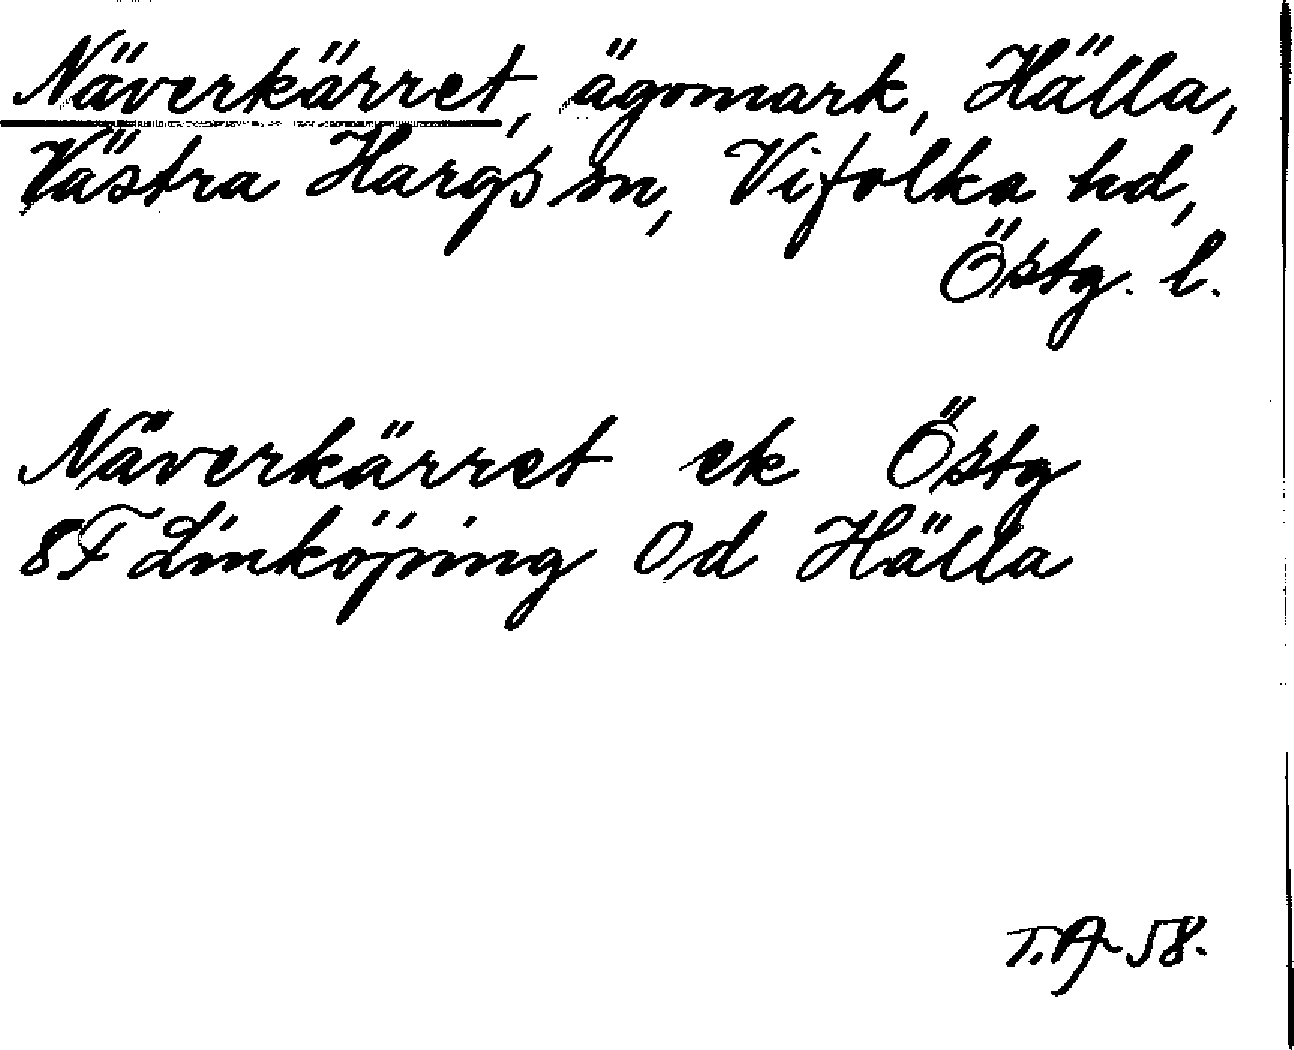 Näverkärret, ägomark, Hälla,
Västra Hargs sn, Vifolka hd,
Östg. l.
Näverkärret ek Östg
8F Linköping Od Hälla
T.A-58.